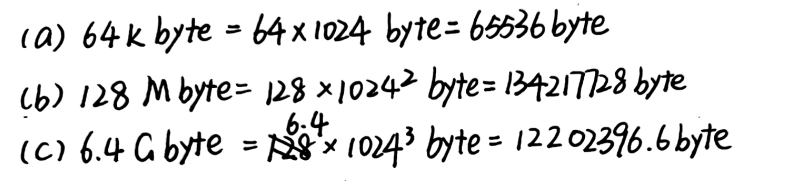 (a) 64K byte = 64 × 1024 byte = 65536 byte
(b) 128 M byte = 128 × 1024² byte = 134217728 byte
(c) 6.4 G byte = 6.4 × 1024³ byte = 12202396.6 byte